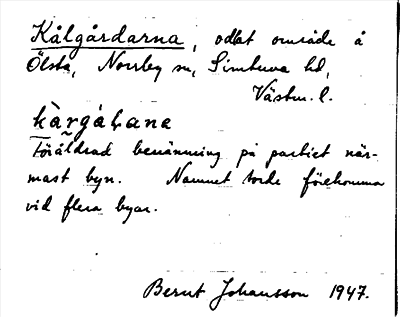 Kålgårdarna, odlat område å
Ölsta, Norrby sn, Simtuna hd,
Västm. l.
kàrgáɫana
Föråldrad benämning på partiet när-
mast byn. Namnet torde förekomma
vid flera byar.
Bernt Johansson 1947.